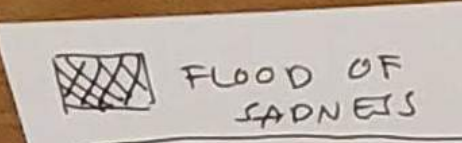 FLOOD OF
SADNESS